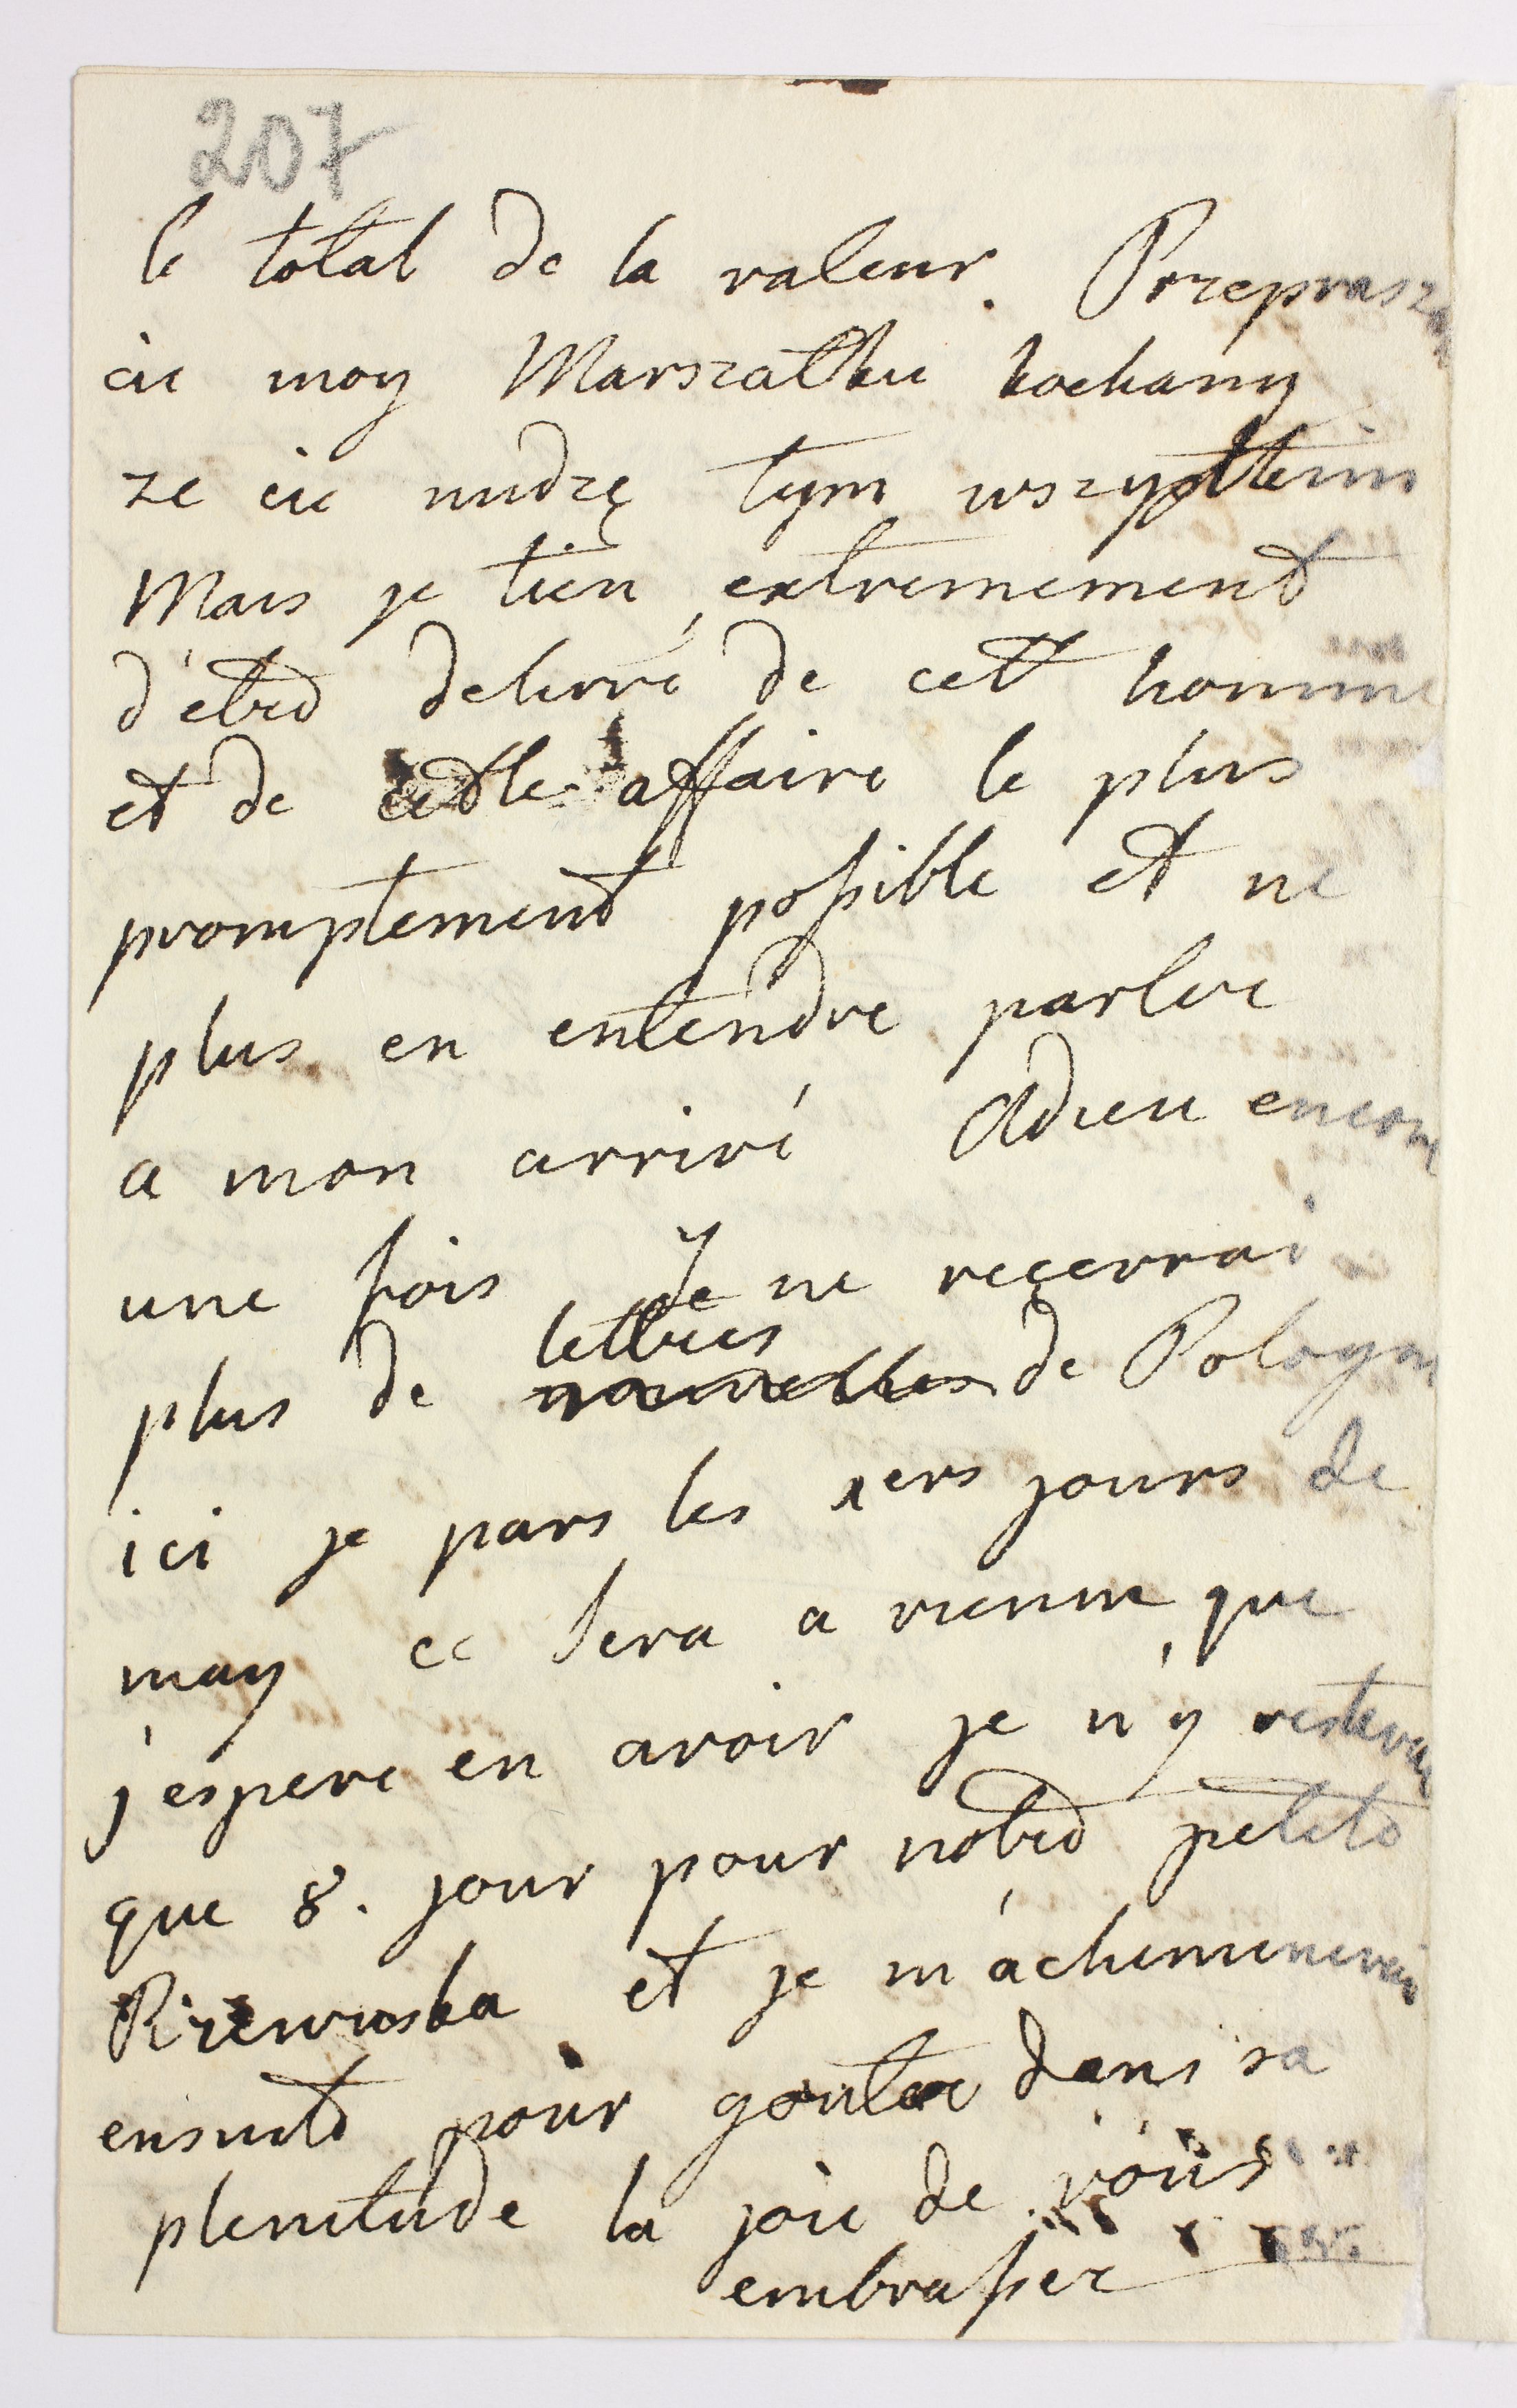 207
le total de la valeur. Przeprasza
cie moy Marszatku kochany
ze cie nudzę tym wszystkim
Mais je tien extremement
d'etre delivré de cett homme
et de cette affaire le plus
promptement possible et ne
plus en entendre parler
a mon arrivé Adieu encore
une fois Je ne reçevrai
plus de lettres nouvelles de Pologne
ici je pars les 1ers jours de
may ce sera a vienne que
j'espere en avoir je n'y resterai
que 8. jour pour notre petite
Rzewuska et je m'acheminerai
ensuite pour gouter dans sa
plenitude la joie de vous
embrasser